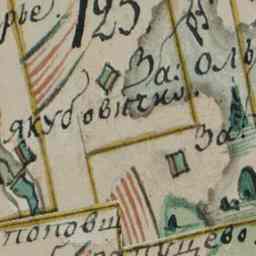 рье. 123
За: оль
якубовички.
За:
поповщ
барапущево.